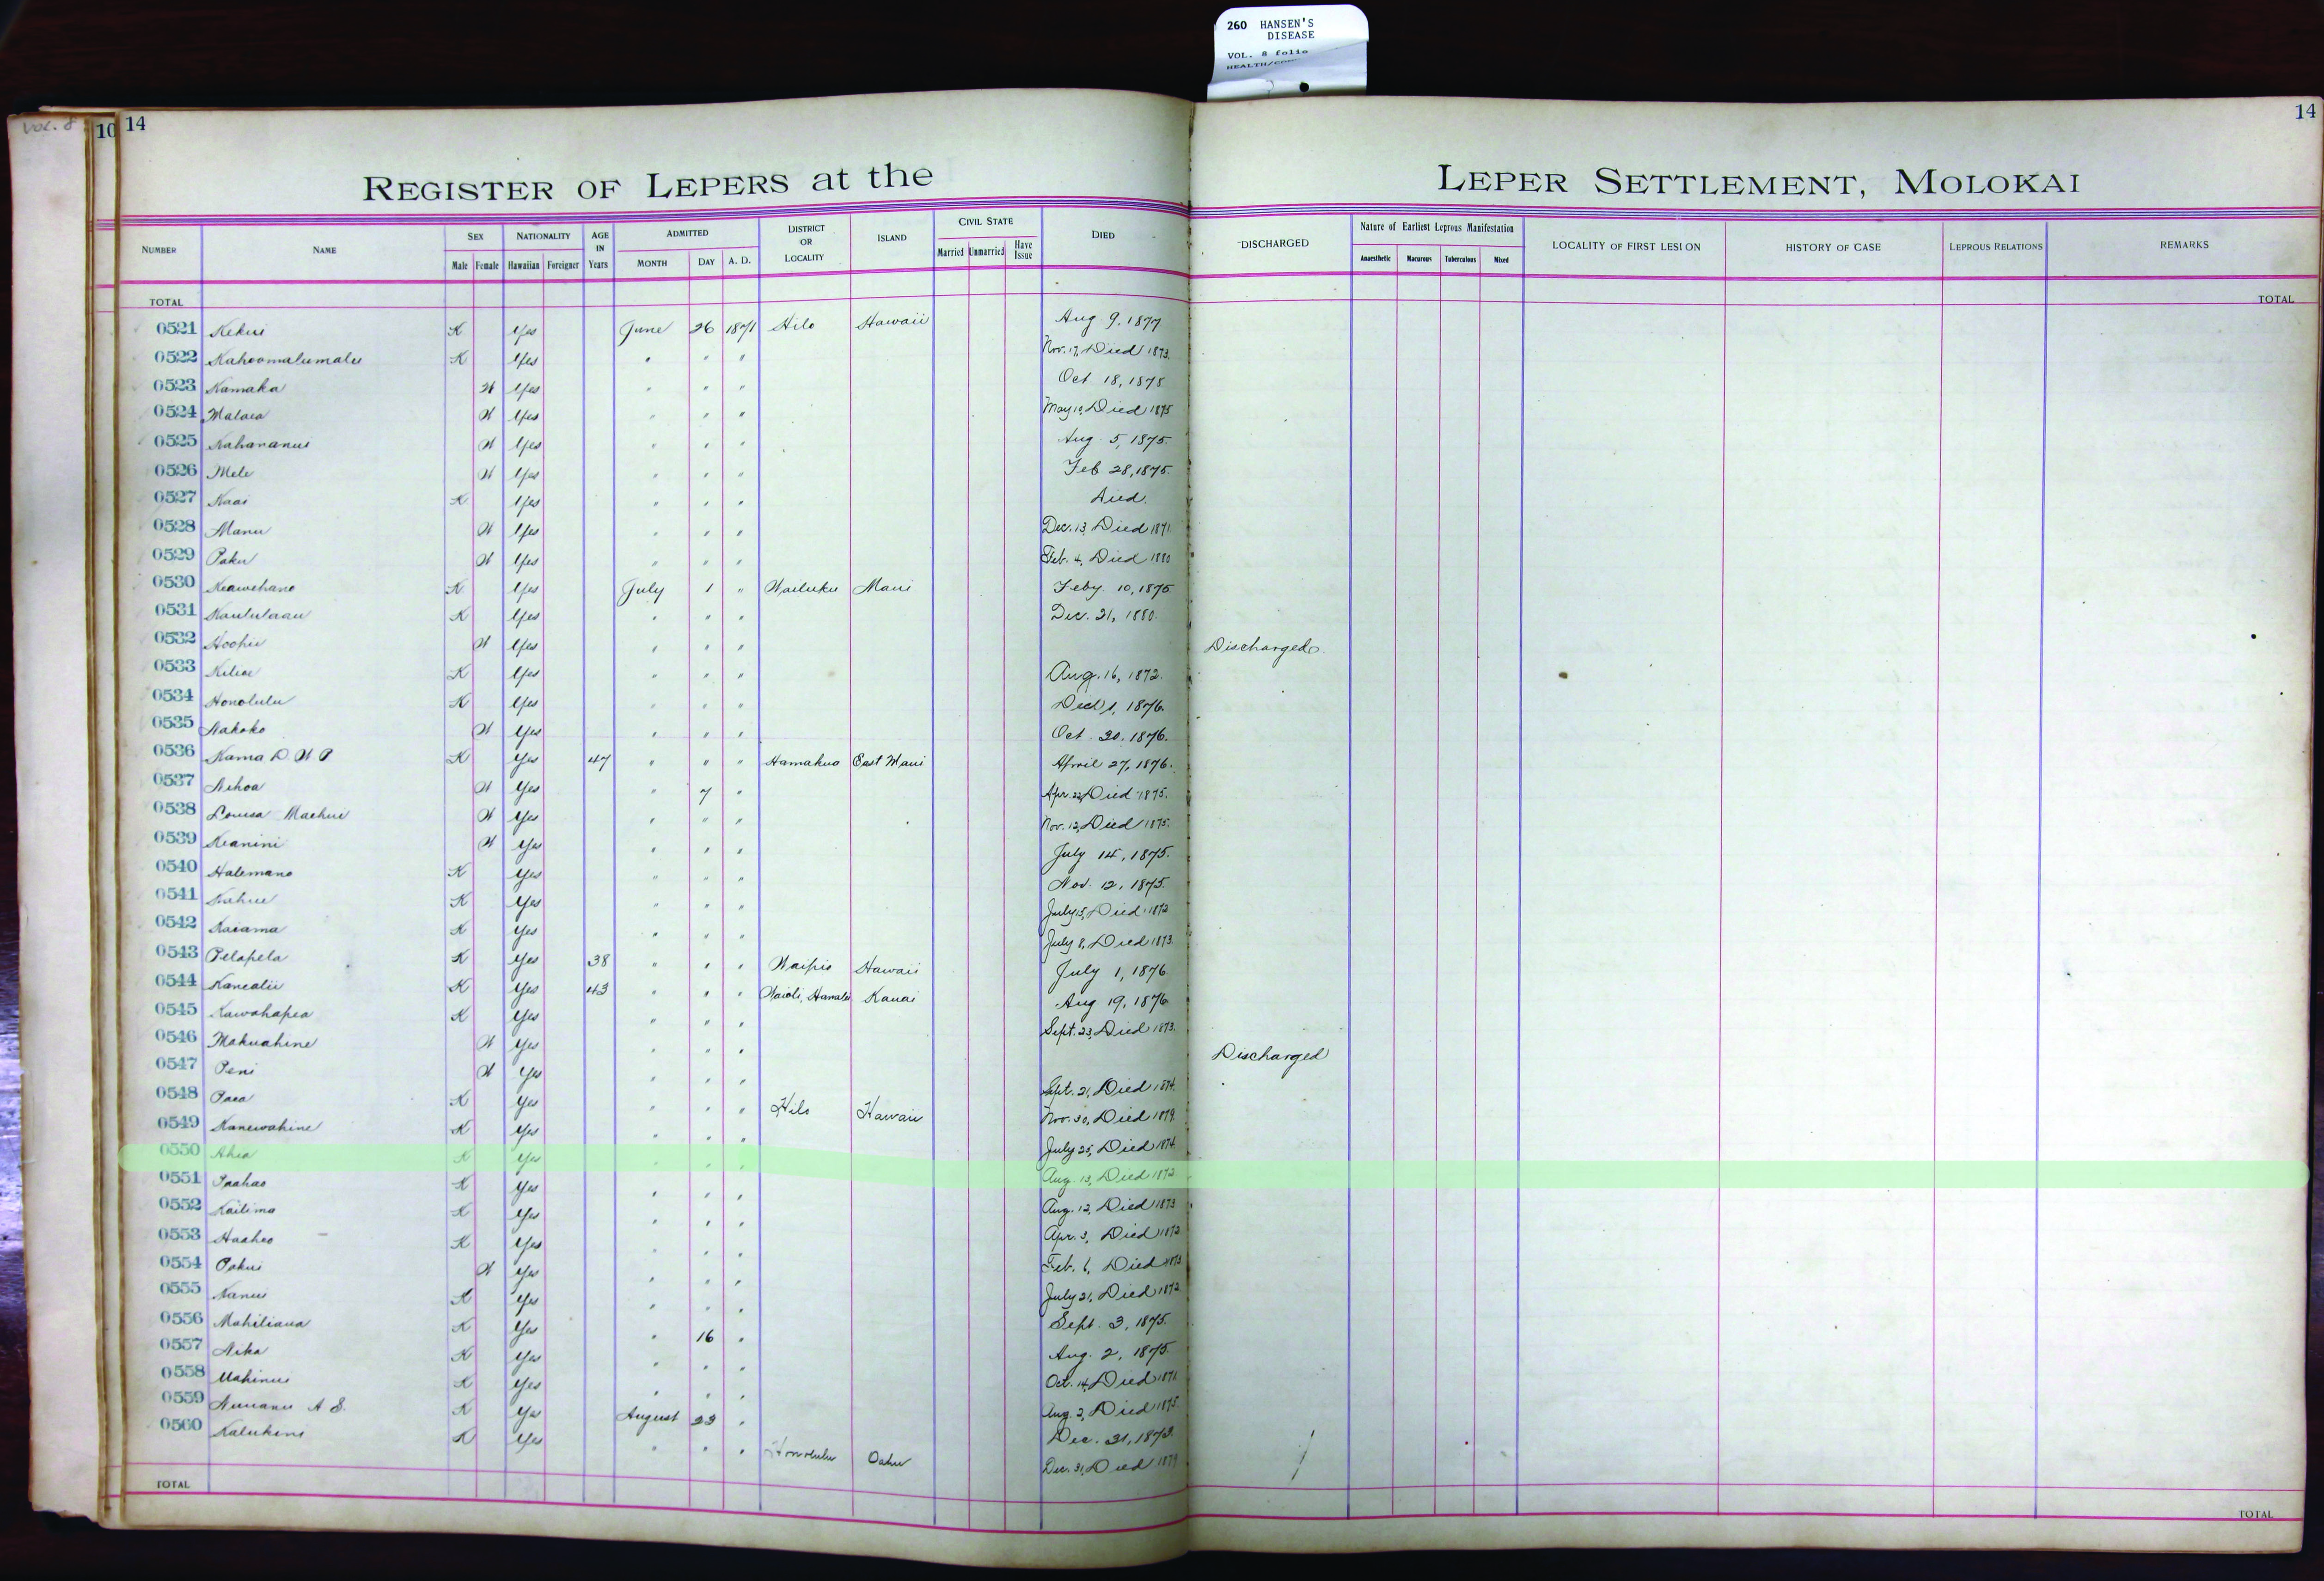 260 HANSEN'S
DISEASE
VOL. 8 folio
VOL. 8
10 14
14
REGISTER OF LEPERS at the
LEPER SETTLEMENT, MOLOKAI
NUMBER NAME SEX Male Female NATIONALITY Hawaiian Foreigner AGE IN Years ADMITTED MONTH DAY A. D. DISTRICT OR LOCALITY ISLAND CIVIL STATE Married Unmarried Have Issue DIED
DISCHARGED Nature of Earliest Leprous Manifestation Anaesthetic Macurous Tuberculous Mixed LOCALITY OF FIRST LESION HISTORY OF CASE LEPROUS RELATIONS REMARKS
TOTAL TOTAL
0521 Kekui K Yes June 26 1871 Hilo Hawaii Aug 9, 1877
0522 Kahoomalumalu K Yes " " " Nov. 17, Died 1873.
0523 Kamaka W Yes " " " Oct 18, 1875
0524 Malaea W Yes " " " May 10, Died 1875
0525 Nahananui W Yes " " " Aug. 5, 1875.
0526 Mele W Yes " " " Feb 28, 1875.
0527 Kaai K Yes " " " Died.
0528 Manu W Yes " " " Dec. 13, Died 1871
0529 Paku W Yes " " " Feb. 4, Died 1880
0530 Keawehano K Yes July 1 " Wailuku Maui Feby 10, 1875
0531 Kaululaau K Yes " " " Dec. 21, 1880.
0532 Hoohii W Yes " " " Discharged.
0533 Kiliae K Yes " " " Aug. 16, 1872.
0534 Honolulu K Yes " " " 1, 1876.
0535 Nakoko W Yes " " " Oct. 20, 1876.
0536 Kama D. W P K Yes 47 " " " Hamakua East Maui April 27, 1876.
0537 Nihoa W Yes " 7 " Apr. 22, Died 1875.
0538 Louisa Maehui W Yes " " " Nov. 12, Died 1875.
0539 Keanini W Yes " " " July 14, 1875.
0540 Halemano K Yes " " " Nov. 12, 1875.
0541 Kahue K Yes " " " July 15, Died 1872
0542 Kaiama K Yes " " " July 8, Died 1873.
0543 Pelapela K Yes 38 " " " Waipio Hawaii July 1, 1876
0544 Kanealii K Yes 43 " " " Waioli, Hanalei Kauai Aug 19, 1876
0545 Kawahapea K Yes " " " Sept. 23, Died 1873.
0546 Makuahine W Yes " " " Discharged
0547 Peni W Yes " " " Sept. 21, Died 1874.
0548 Paea K Yes " " " Hilo Hawaii Nov. 30, Died 1879.
0549 Kanewahine K Yes " " " July 25, Died 1874.
0550 Ahia K Yes " " " Aug. 13, Died 1872.
0551 Paahao K Yes " " " Aug. 12, Died 1873
0552 Kailima K Yes " " " Apr. 3, Died 1872
0553 Haaheo K Yes " " " Feb. 6, Died 1873
0554 Pakui W Yes " " " July 21, Died 1872
0555 Nanui K Yes " " " Sept. 3, 1875.
0556 Mahiliaua K Yes " 16 " Aug. 2, 1875.
0557 Nika K Yes " " " Oct. 14, Died 1871
0558 Mahinui K Yes " " " Aug. 2, Died 1875.
0559 Nuuanu A S. K Yes August 23 " Dec. 31, 1873.
0560 Kalukini K Yes " " " Honolulu Oahu Dec. 31, Died 1879
TOTAL TOTAL